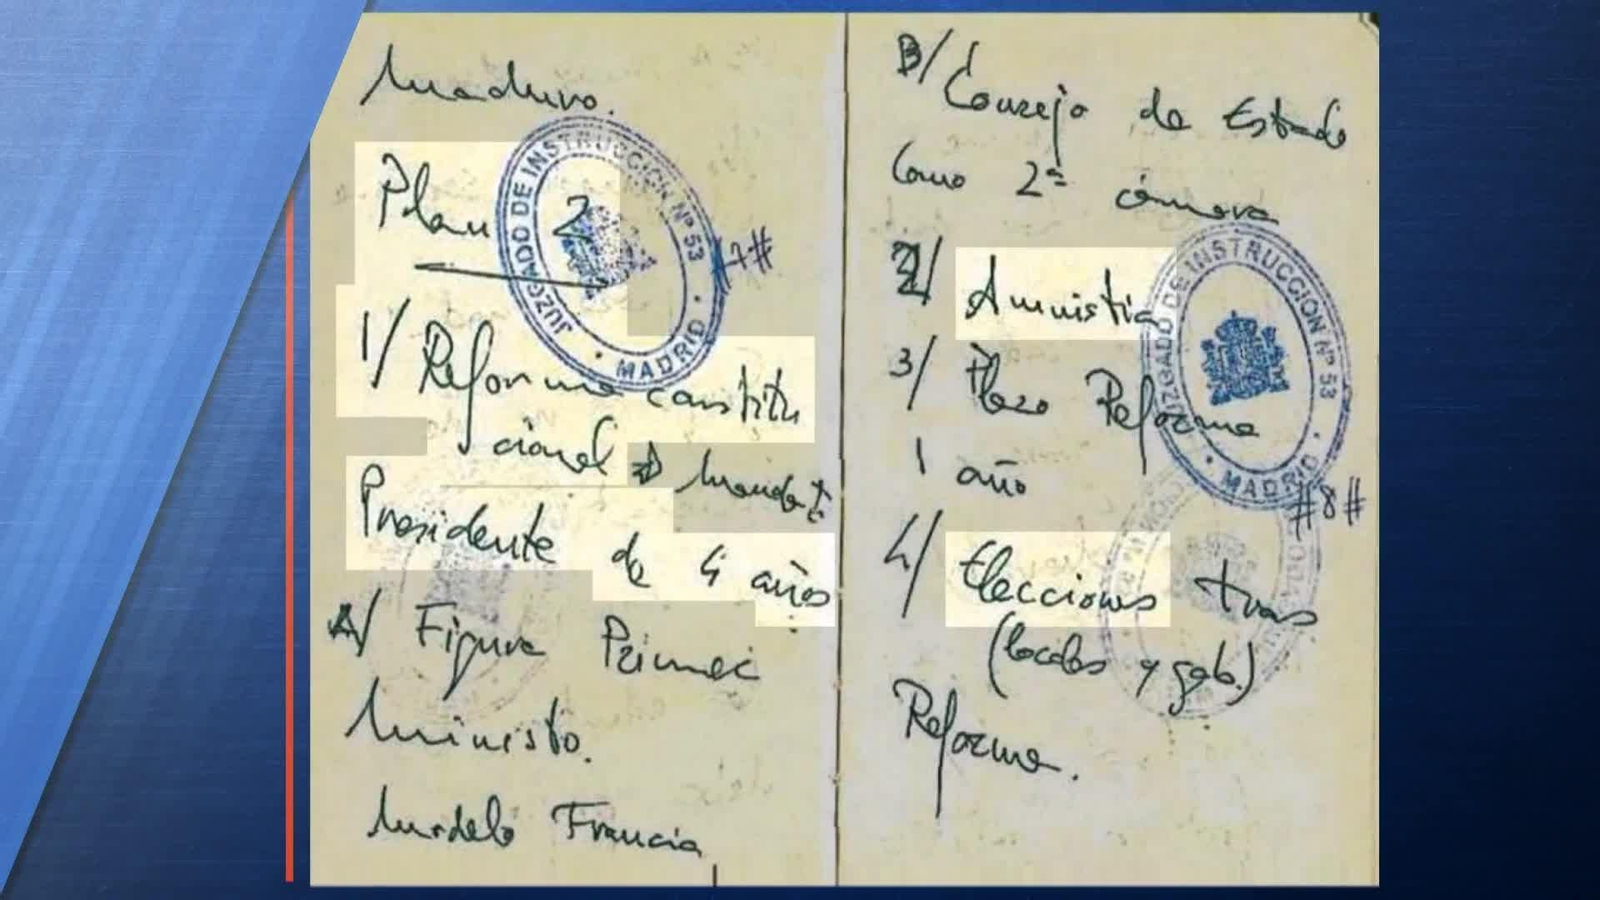 Maduro.
Plan 2
1/ Reforma constitu
cional => mandato
Presidente de 4 años
A/ Figura Primer
Ministo.
Modelo Francia
JUZGADO DE INSTRUCCION Nº 53
MADRID
#7#
B/ Consejo de Estado
como 2ª cámara
2/ Amnistia
3/ Plazo Reforma
1 año
4/ Elecciones tras
(locales y gob.)
Reforma.
JUZGADO DE INSTRUCCION Nº 53
MADRID
#8#